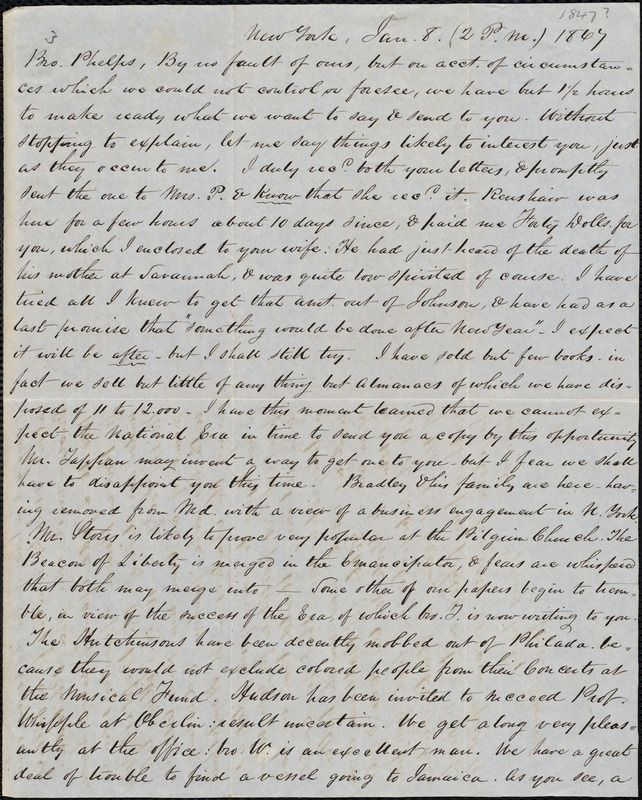 1847?
3
New York, Jan. 8. (2 P.M.) 1847
Bro. Phelps, By no fault of ours, but on acct. of circumstan-
ces which we could not control or foresee, we have but 1½ hours
to make ready what we want to say & send to you. Without
stopping to explain, let me say things likely to interest you, just
as they occur to me. I duly recd. both your letters, & promptly
sent the one to Mrs. P. & know that she recd. it. Renshaw was
here for a few hours about 10 days since, & paid me Forty Dolls. for
you, which I enclosed to your wife. He had just heard of the death of
his mother at Savannah, & was quite low spirited of course. I have
tried all I knew to get that amt. out of Johnson, & have had as a
last promise that "something would be done after New Year" - I expect
it will be after - but I shall still try. I have sold but few books - in
fact we sell but little of any thing but Almanacs of which we have dis-
posed of 11 to 12.000 - I have this moment learned that we cannot ex-
pect the National Era in time to send you a copy by this opportunity
Mr. Tappan may invent a way to get one to you - but I fear we shall
have to disappoint you this time. Bradley & his family are here - hav-
ing removed from Md. with a view of a business engagement in N. York
Mr. Storrs is likely to prove very popular at the Pilgrim Church. The
Beacon of Liberty is merged in the Emancipator, & fears are whispered
that both may merge into — Some other of our papers begin to trem-
ble, in view of the success of the Era, of which bro. T. is now writing to you.
The Hutchinsons have been decently mobbed out of Philada. be-
cause they would not exclude colored people from their Concerts at
the Musical Fund. Hudson has been invited to succeed Prof.
Whipple at Oberlin: result uncertain. We get along very pleas-
antly at the office: bro. W. is an excellent man. We have a great
deal of trouble to find a vessel going to Jamaica. As you see, a